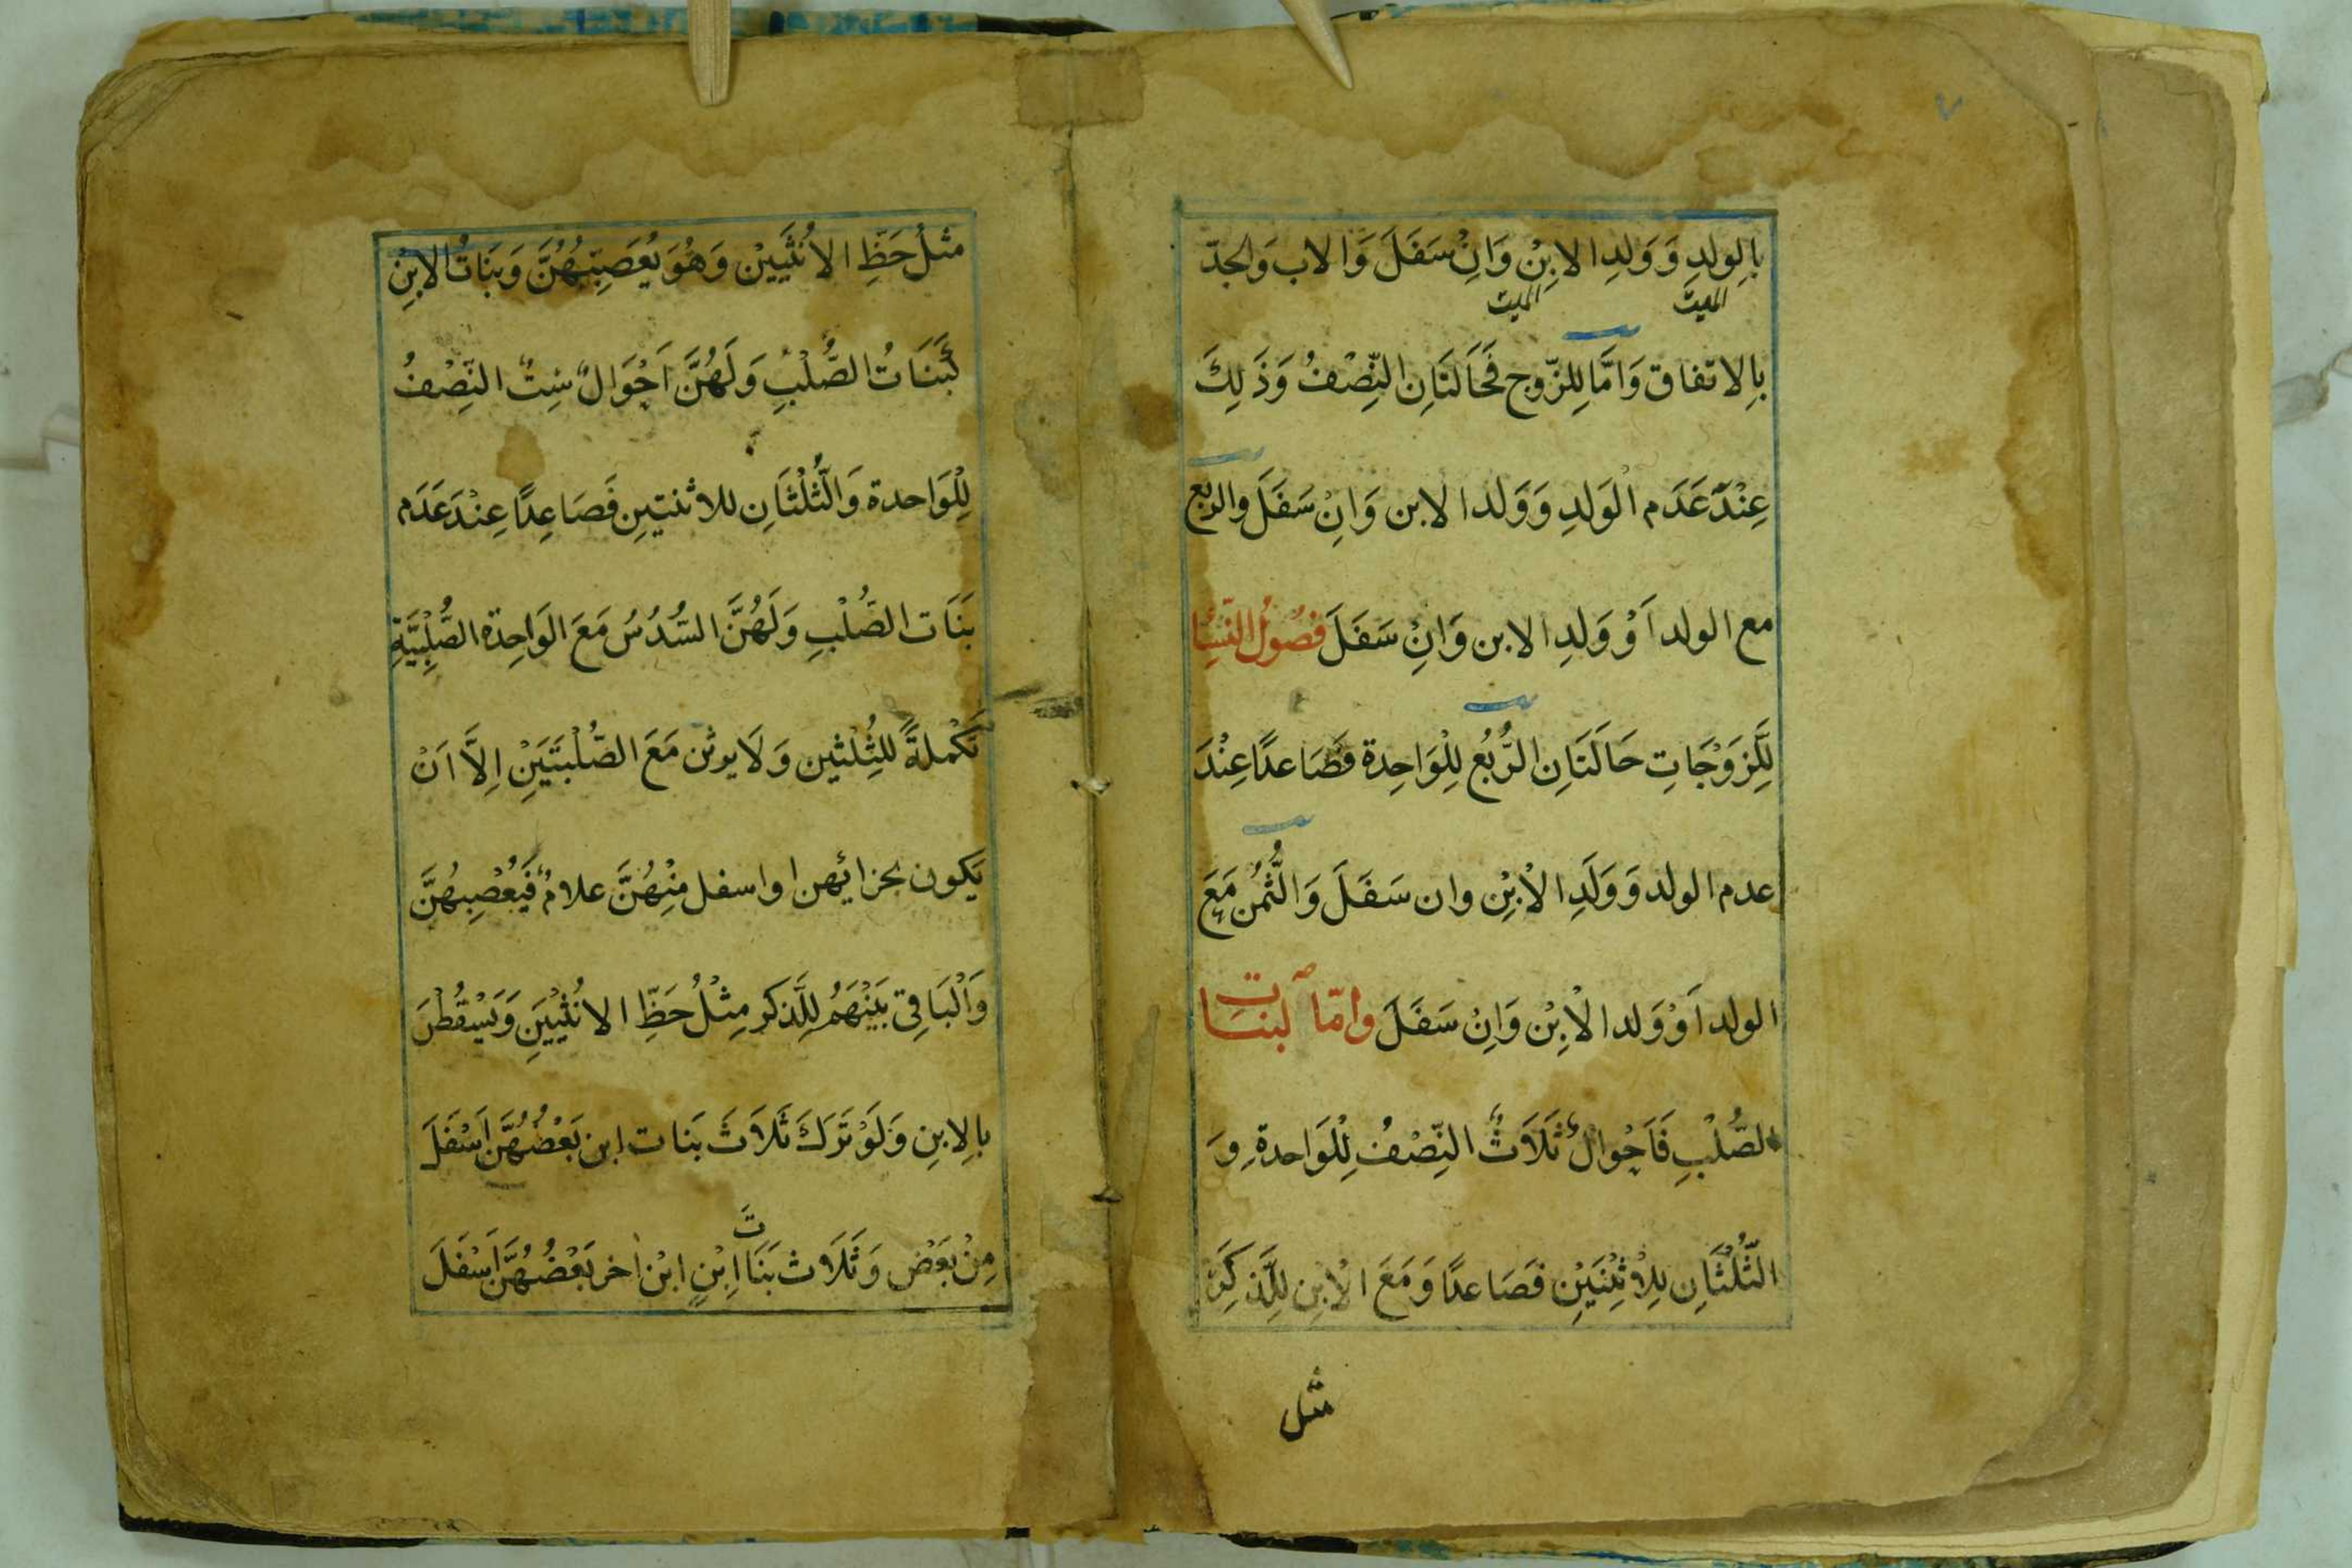 ٧
بِالوِلدِ وَوَلدِ الابِنْ وَاِنْ سَفَلَ وَالاب وَالجدّ
الميتّ
الميت
بِالاتفاق وَامَّا لِلزّوج فَحَالَتَانِ النِّصْفُ وَذَلِكَ
عِنْدَ عَدَم الْوَلدِ وَوَلد الابن وَاِنْ سَفَلَ والربع
مع الولد اَوْ وَلدِ الابن وَاِنْ سَفَلَ فصُوُل النِّسَِٔا
لِلَّزَوْجَاتِ حَالَتَانِ الرُّبُعُ لِلْوَاحِدة فَصَاعدًا عِنْدَ
عدم الولد وَوَلَدِ الاْبِنْ وان سَفَلَ وَالثُّمُن مَعَ
الولد اَوْ وَلد الْابِنْ وَاِنْ سَفَلَ وامّا لبنات
الصُّلْبِ فَاَحْوالٌ ثَلَاثٌ النِّصْفُ لِلْوَاحدةِ وَ
الثُّلُثَانِ لِلاْثِنْتَيْنِ فَصَاعدًا وَمَعَ الْابِنِ لِلَّذكَرِ
مثل
مثْلُ حَظِّ الاُنْثَيَيْن وَهُوَ يُعَصِّبُهُنَّ وَبَنَاتُ الابِنْ
كَبَنَاتُ الصُّلْبِ وَلَهُنَّ اَحْوَالٌ سِتٌ النِّصْفُ
لِلْوَاحدة وَالثُّلُثَانِ للاثنتيِن فَصَاعِدًا عِنْدَ عَدَم
بَنَات الصُّلْبِ وَلَهُنَّ السُّدُسُ مَعَ الوَاحِدة الصُّلْبِيَّةِ
تَكْملةً للثِلُثين وَلَا يرثن مَعَ الصُّلْبَتَيَنِْ اِلاَّ اَنْ
يَكون بحزائهن او اسفل مِنْهُنَّ علامٌ فَيُعْصِبهُنَّ
وَالْبَاقِى بَيْنَهَمُ لِلَّذكر مِثْلُ حَظِّ الانُثْيَيَنِ وَيَسْقُطْنَ
بالِابنِ وَلَوْ تَرَكَ ثَلاَثَ بَنات ابن بَعْضُهُنَّ اَسْفَلَ
مِنْ بَعَضٍ وَثَلَاث بَنَاتَ اِبْنٍ ابْن اٰخر بَعْضُهُنَّ اَسْفَلَ